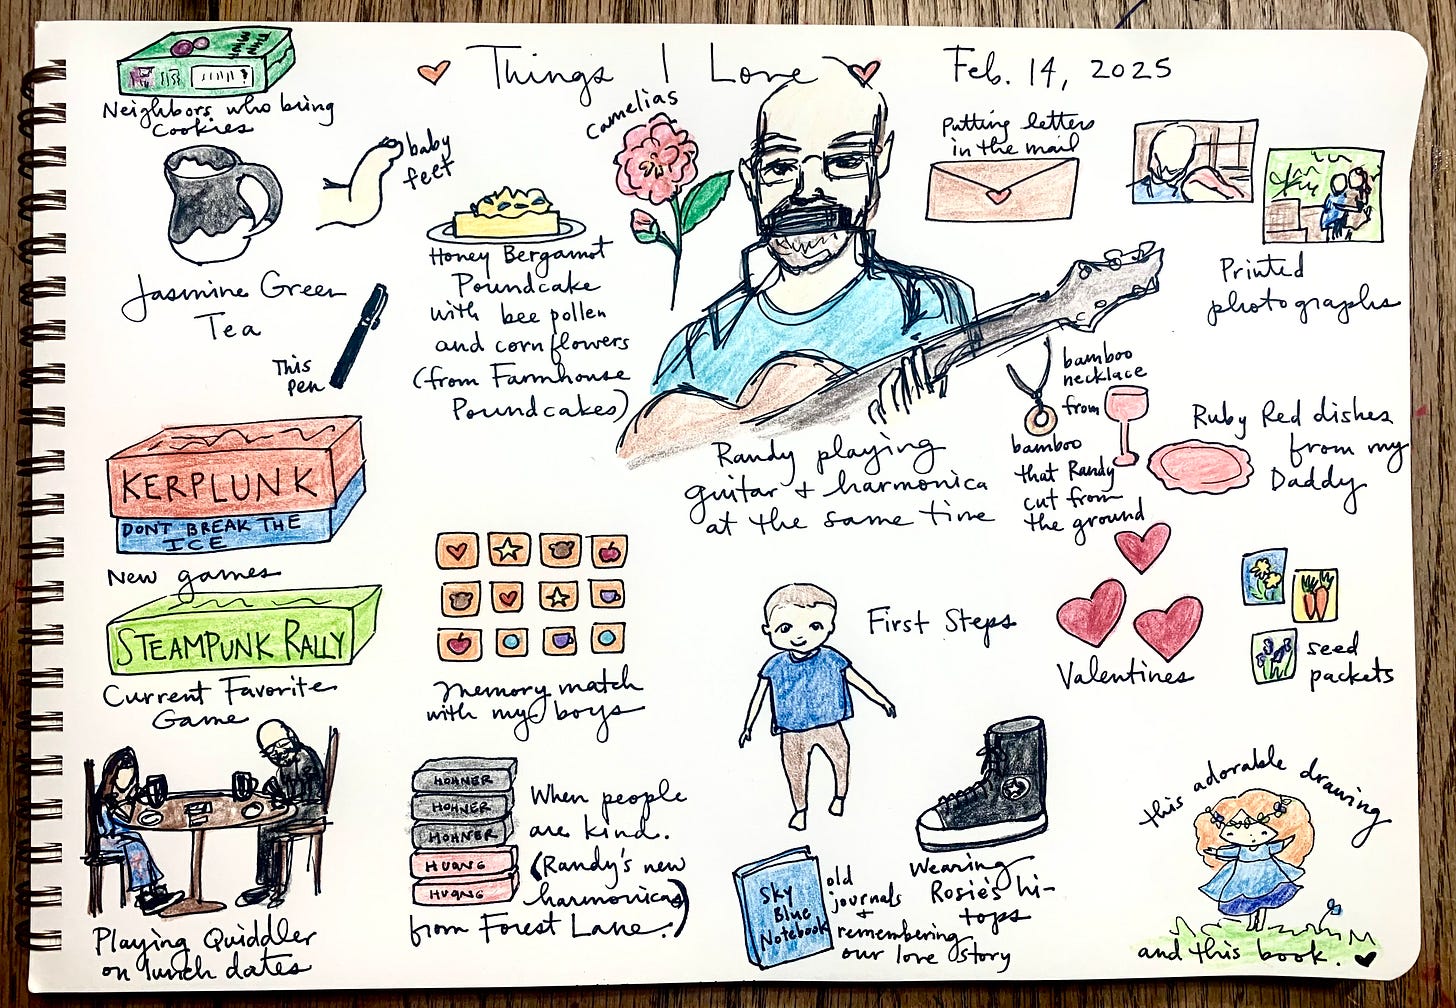 Things I Love
Feb. 14, 2025
Neighbors who bring
Cookies
baby
feet
Jasmine Green
Tea
This
pen
Honey Bergamot
Poundcake
with bee pollen
and cornflowers
(from Farmhouse
Poundcakes)
Camelias
Putting letters
in the mail
Printed
photographs
Randy playing
guitar + harmonica
at the same time
bamboo
necklace
from
bamboo
that Randy
cut from
the ground
Ruby Red dishes
from my
Daddy
KERPLUNK
DONT BREAK THE
ICE
New games
STEAMPUNK RALLY
Current Favorite
Game
Memory match
with my boys
First Steps
Valentines
seed
packets
Playing Quiddler
on lunch dates
HOHNER
HOHNER
HOHNER
HUANG
HUANG
When people
are kind.
(Randy's new
harmonicas)
from Forest Lane.)
Sky
Blue
Notebook
old
journals
+
remembering
our love story
Wearing
Rosie's hi-
tops
this adorable drawing
and this book.